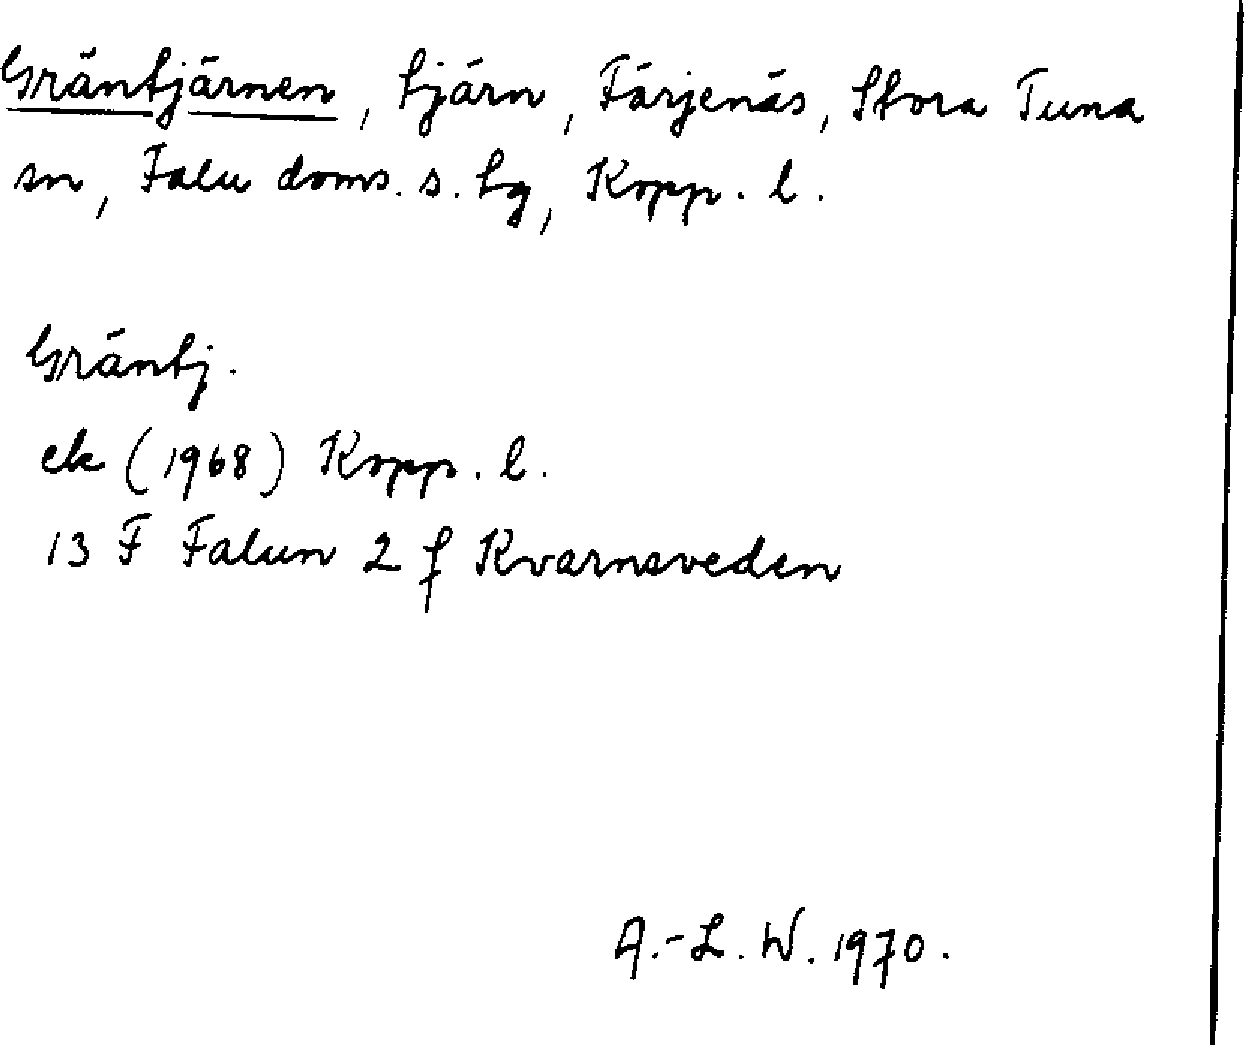 Gräntjärnen, tjärn, Färjenäs, Stora Tuna
sn, Falu doms. s. tg, Kopp. l.
Gräntj.
ek (1968) Kopp. l.
13 F Falun 2 f Kvarnsveden
A.-L. W. 1970.